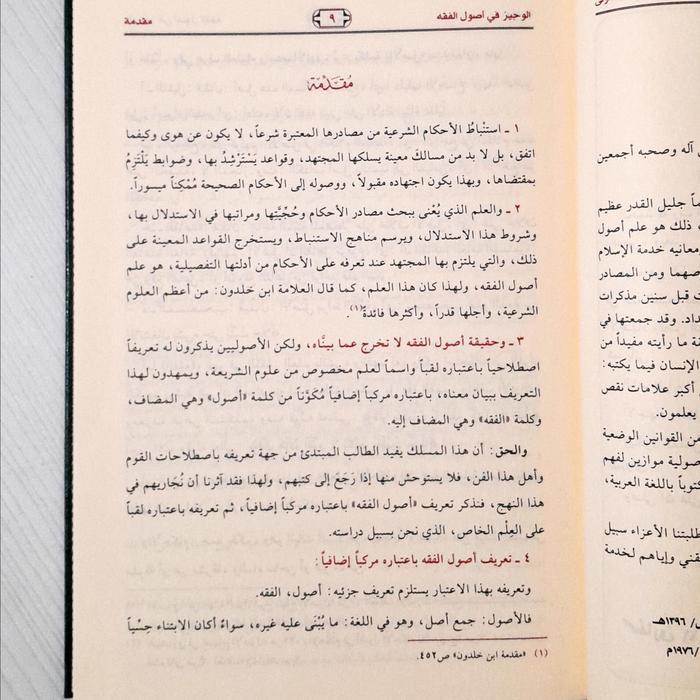 الوجيز في أصول الفقه
٩
مقدمة
مُقَدِّمَة
١ ـ استنْباطُ الأحكام الشرعية من مصادرها المعتبرة شرعاً، لا يكون عن هوى وكيفما
اتفق، بل لا بد من مسالكَ معينة يسلكها المجتهد، وقواعد يَسْتَرْشِدُ بها، وضوابط يَلْتَزِمُ
بمقتضاها، وبهذا يكون اجتهاده مقبولاً، ووصوله إلى الأحكام الصحيحة مُمْكِناً ميسوراً.
٢ ـ والعلم الذي يُعْنى ببحث مصادر الأحكام وحُجِّيَّتِها ومراتبها في الاستدلال بها،
وشروط هذا الاستدلال، ويرسم مناهج الاستنباط، ويستخرج القواعد المعينة على
ذلك، والتي يلتزم بها المجتهد عند تعرفه على الأحكام من أدلتها التفصيلية، هو علم
أصول الفقه، ولهذا كان هذا العلم، كما قال العلامة ابن خلدون: من أعظم العلوم
الشرعية، وأجلها قدراً، وأكثرها فائدة(١).
٣ ـ وحقيقة أصول الفقه لا تخرج عما بيناه، ولكن الأصوليين يذكرون له تعريفاً
اصطلاحياً باعتباره لقباً واسماً لعلم مخصوص من علوم الشريعة، ويمهدون لهذا
التعريف ببيان معناه، باعتباره مركباً إضافياً مُكَوَّناً من كلمة «أصول» وهي المضاف،
وكلمة «الفقه» وهي المضاف إليه.
والحق: أن هذا المسلك يفيد الطالب المبتدئ من جهة تعريفه باصطلاحات القوم
وأهل هذا الفن، فلا يستوحش منها إذا رَجَعَ إلى كتبهم، ولهذا فقد آثرنا أن نُجَاريهم في
هذا النهج، فنذكر تعريف «أصول الفقه» باعتباره مركباً إضافياً، ثم تعريفه باعتباره لقباً
على العِلْم الخاص، الذي نحن بسبيل دراسته.
٤ ـ تعريف أصول الفقه باعتباره مركباً إضافياً:
وتعريفه بهذا الاعتبار يستلزم تعريف جزئيه: أصول، الفقه.
فالأصول: جمع أصل، وهو في اللغة: ما يُبْنَى عليه غيره، سواءٌ أكان الابتناء حِسْياً
(١) «مقدمة ابن خلدون» ص٤٥٢.
آله وصحبه أجمعين
جليل القدر عظيم
ذلك هو علم أصول
معانيه خدمة الإسلام
ومن المصادر
قبل سنين مذكرات
وقد جمعتها في
ما رأيته مفيداً من
الإنسان فيما يكتبه:
أكبر علامات نقص
يعلمون.
من القوانين الوضعية
موازين لفهم
باللغة العربية،
الأعزاء سبيل
وإياهم لخدمة
/١٣٩٦هـ
/١٩٧٦م